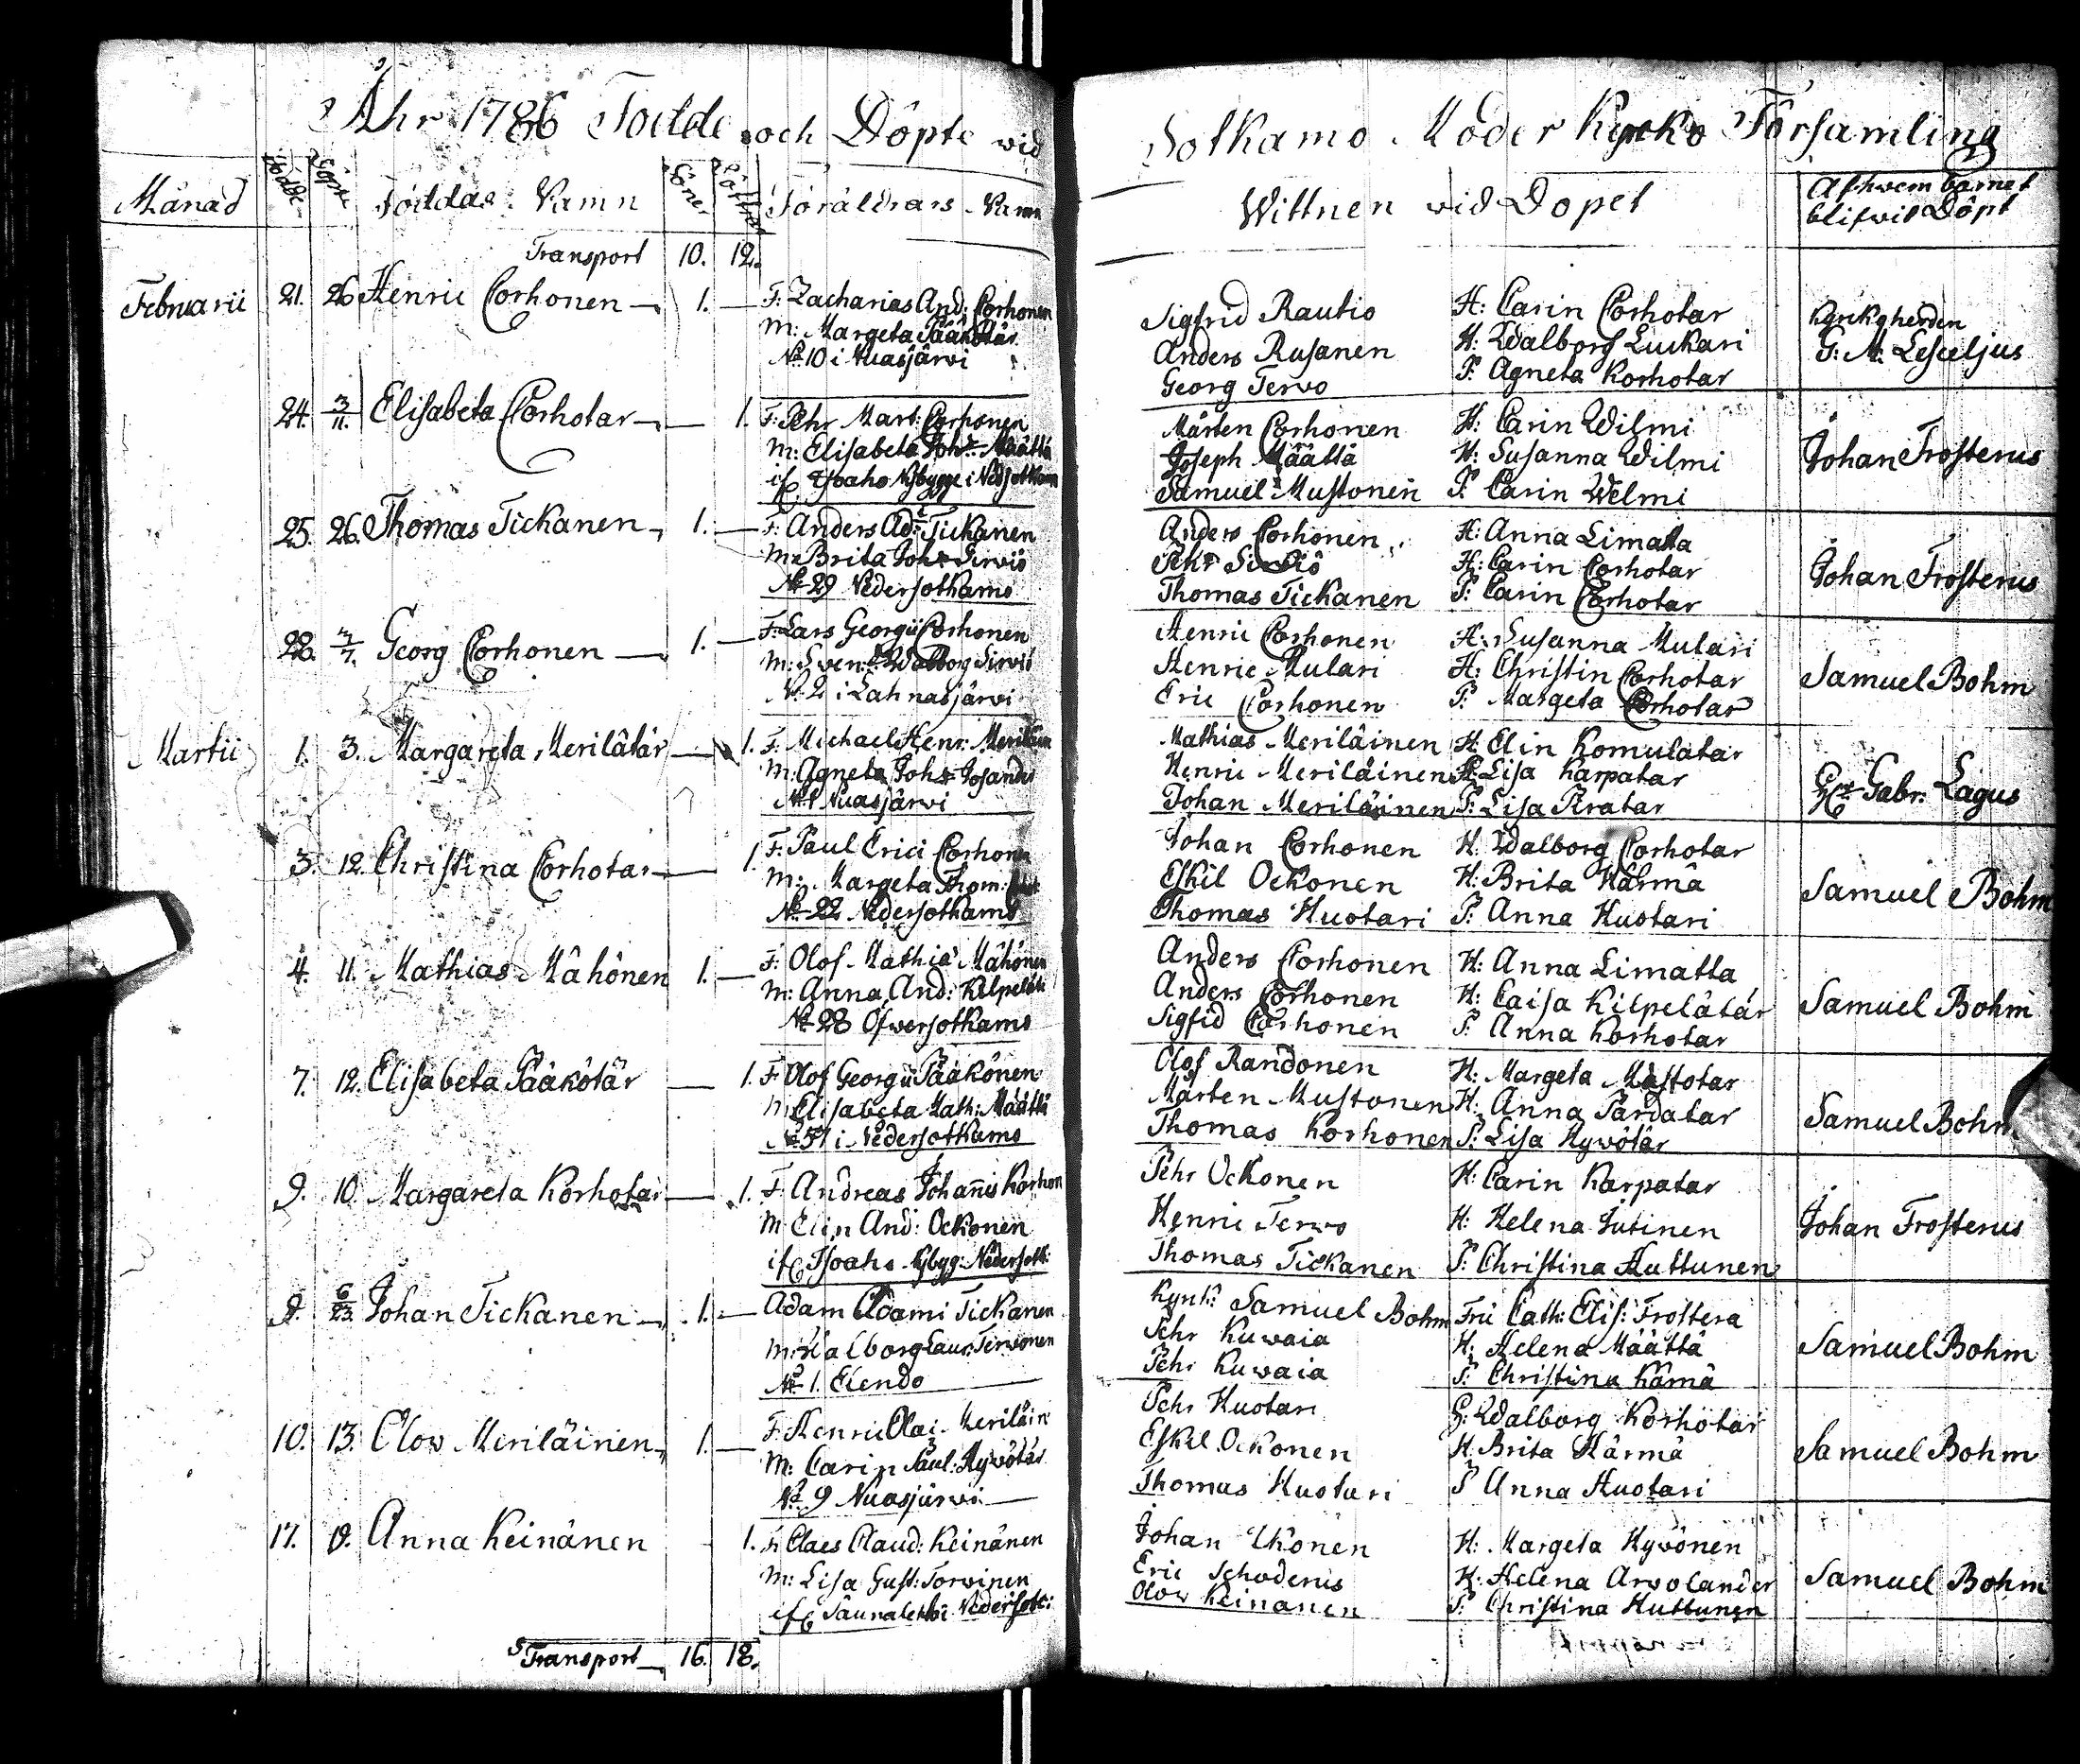 Åhr 1786 Födde och Döpte wid Sotkamo Moder Kyrko Församling
Månad Födde Döpte Föddas Namn Söner Döttrar Föräldrars Namn Wittnen wid Dopet Af hwem barnet blifwit Döpt
Transport 10. 12.
Februarii 21. 26 Henric Corhonen 1. F: Zacharias And: Corhonen
M: Margeta Pääkötär
No 10 i Nuasjärwi
Sigfrid Rautio H: Carin Corhotar
Anders Rusanen H: Walborg Luckari
Georg Terwo P. Agneta Korhotar
Kyrkoherden
G: M: Lesceljus
24. 3/11. Elisabeta Corhotar 1. F: Pehr Mart: Corhonen
M: Elisabeta Johs Määttä
if Nybygge i Nedsotkam
Mårten Corhonen H: Carin Wilmi
Joseph Määttä H: Susanna Wilmi
Samuel Mustonen P. Carin Welmi
Johan Frosterus
25. 26. Thomas Tickanen 1. F: Anders Ad: Tickanen
M: Brita Johs Sirwiö
No 29 Nedersotkamo
Anders Corhonen H: Anna Limatta
Pehr Sirwiö H: Carin Corhotar
Thomas Tickanen P: Carin Corhotar
Johan Frosterus
28. Georg Corhonen 1. F: Lars Georgii Corhonen
M: Walborg Sirwiö
No. 2 i Lahnasjärwi
Henric Corhonen H: Susanna Mulari
Henric Mulari H: Christin Corhotar
Eric Corhonen P: Margeta Corhotar
Samuel Bohm
Martii 1. 3. Margareta Merilätär 1. F: Michael Henr: Meriläin
M: Agneta Johs
Nuasjärwi
Mathias Meriläinen H: Elin Komulatar
Henric Meriläinen H: Lisa Karpatar
Johan Meriläinen P: Lisa Piratar
Gabr: Lagus
3. 12. Christina Corhotar 1. F: Paul Erici Corhonen
M: Margeta Thom:
No 22 Nedersotkamo
Johan Corhonen H: Walborg Corhotar
Eskil Ockonen H: Brita Härmä
Thomas Huotari P: Anna Huotari
Samuel Bohm
4. 11. Mathias Mähönen 1. F: Olof Mathiæ Mähönen
M: Anna And: Kilpelät:
No 28 Öfwersotkamo
Anders Corhonen H: Anna Limatta
Anders Corhonen H: Caisa Kilpelätär
Sigfid Corhonen P. Anna Korhotar
Samuel Bohm
7. 12. Elisabeta Pääkötär 1. F: Olof Georgii Pääkönen
M: Elisabeta Math: Määttä
i Nedersotkamo
Olof Randonen H: Margeta Mustotar
Mårten Mustonen H: Anna Pardatar
Thomas Korhonen P: Lisa Hywötär
Samuel Bohm
9. 10. Margareta Korhotar 1. F: Andreas Johannis Korhon
M Elin And: Ockonen
if Nybyg: Nedersott:
Pehr Ockonen H: Carin Karpatar
Henric Terwo H: Helena Jutinen
Thomas Tickanen P: Christina Huttunen
Johan Frosterus
9. 6/23. Johan Tickanen 1. Adam Adami Tickanen
M: Walborg Laur: Terwonen
No 1. Elendo
Samuel Bohm Fru Cath: Elis: Frostera
Pehr Kuwaia H: Helena Määttä
Pehr Kuwaia P: Christina Kämä
Samuel Bohm
10. 13. Olow Meriläinen 1. F: Henric Olai Meriläin
M: Carin Paul: Hywötär
No 9 Nuasjärwi
Pehr Huotari H: Walborg Korhotar
Eskil Ockonen H: Brita Härmä
Thomas Huotari P Anna Huotari
Samuel Bohm
17. 19. Anna Keinänen 1. F: Claes Claud: Keinänen
M: Lisa Gust: Torwinen
if Saunalehto i Nedersotk:
Johan Ukonen H: Margeta Hywönen
Eric Schoderus H: Helena Arwolander
Olow Keinänen P: Christina Huttunen
Samuel Bohm
Transport 16. 18.